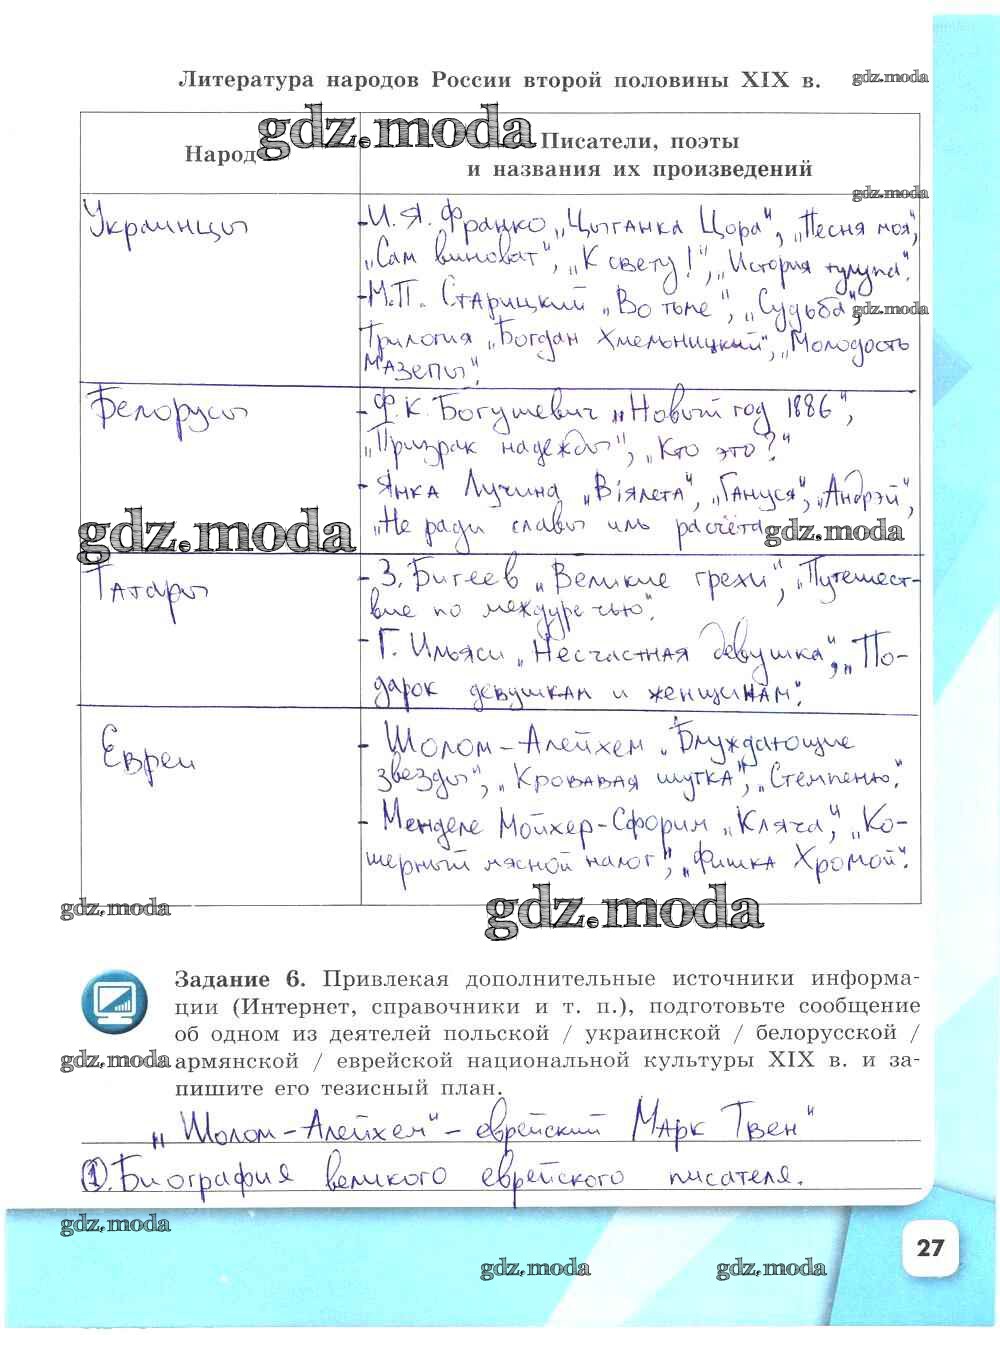 Литература народов России второй половины XIX в.
gdz.moda
gdz.moda
Народ
Писатели, поэты
и названия их произведений
gdz.moda
Украинцы
- И.Я. Франко „Цыганка Цора", „Песня моя",
„Сам виноват", „К свету!", „История тулупа".
- М.П. Старицкий „Во тьме", „Судьба",
gdz.moda
Трилогия „Богдан Хмельницкий", „Молодость
Мазепы".
Белорусы
- Ф.К. Богушевич „Новый год 1886",
„Призрак надежды", „Кто это?"
- Янка Лучина „Віялета", „Гануся", „Андрэй",
„Не ради славы иль расчёта
gdz.moda
gdz.moda
Татары
- З. Бигеев „Великие грехи", „Путешест-
вие по междуречью".
- Г. Ильяси „Несчастная девушка", „По-
дарок девушкам и женщинам".
Евреи
- Шолом-Алейхем „Блуждающие
звезды", „Кровавая шутка", „Стемпеню".
- Менделе Мойхер-Сфорим „Кляча", „Ко-
шерный мясной налог", „Фишка Хромой".
gdz.moda
gdz.moda
Задание 6. Привлекая дополнительные источники информа-
ции (Интернет, справочники и т. п.), подготовьте сообщение
об одном из деятелей польской / украинской / белорусской /
gdz.moda
армянской / еврейской национальной культуры XIX в. и за-
пишите его тезисный план.
„Шолом-Алейхем" - еврейский Марк Твен"
1. Биография великого еврейского писателя.
gdz.moda
27
gdz.moda
gdz.moda